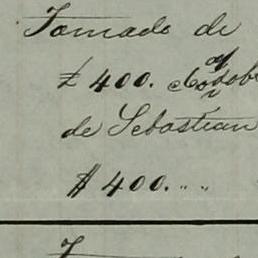 Tomado de
£ 400.
de Sebastian
$ 400. " "